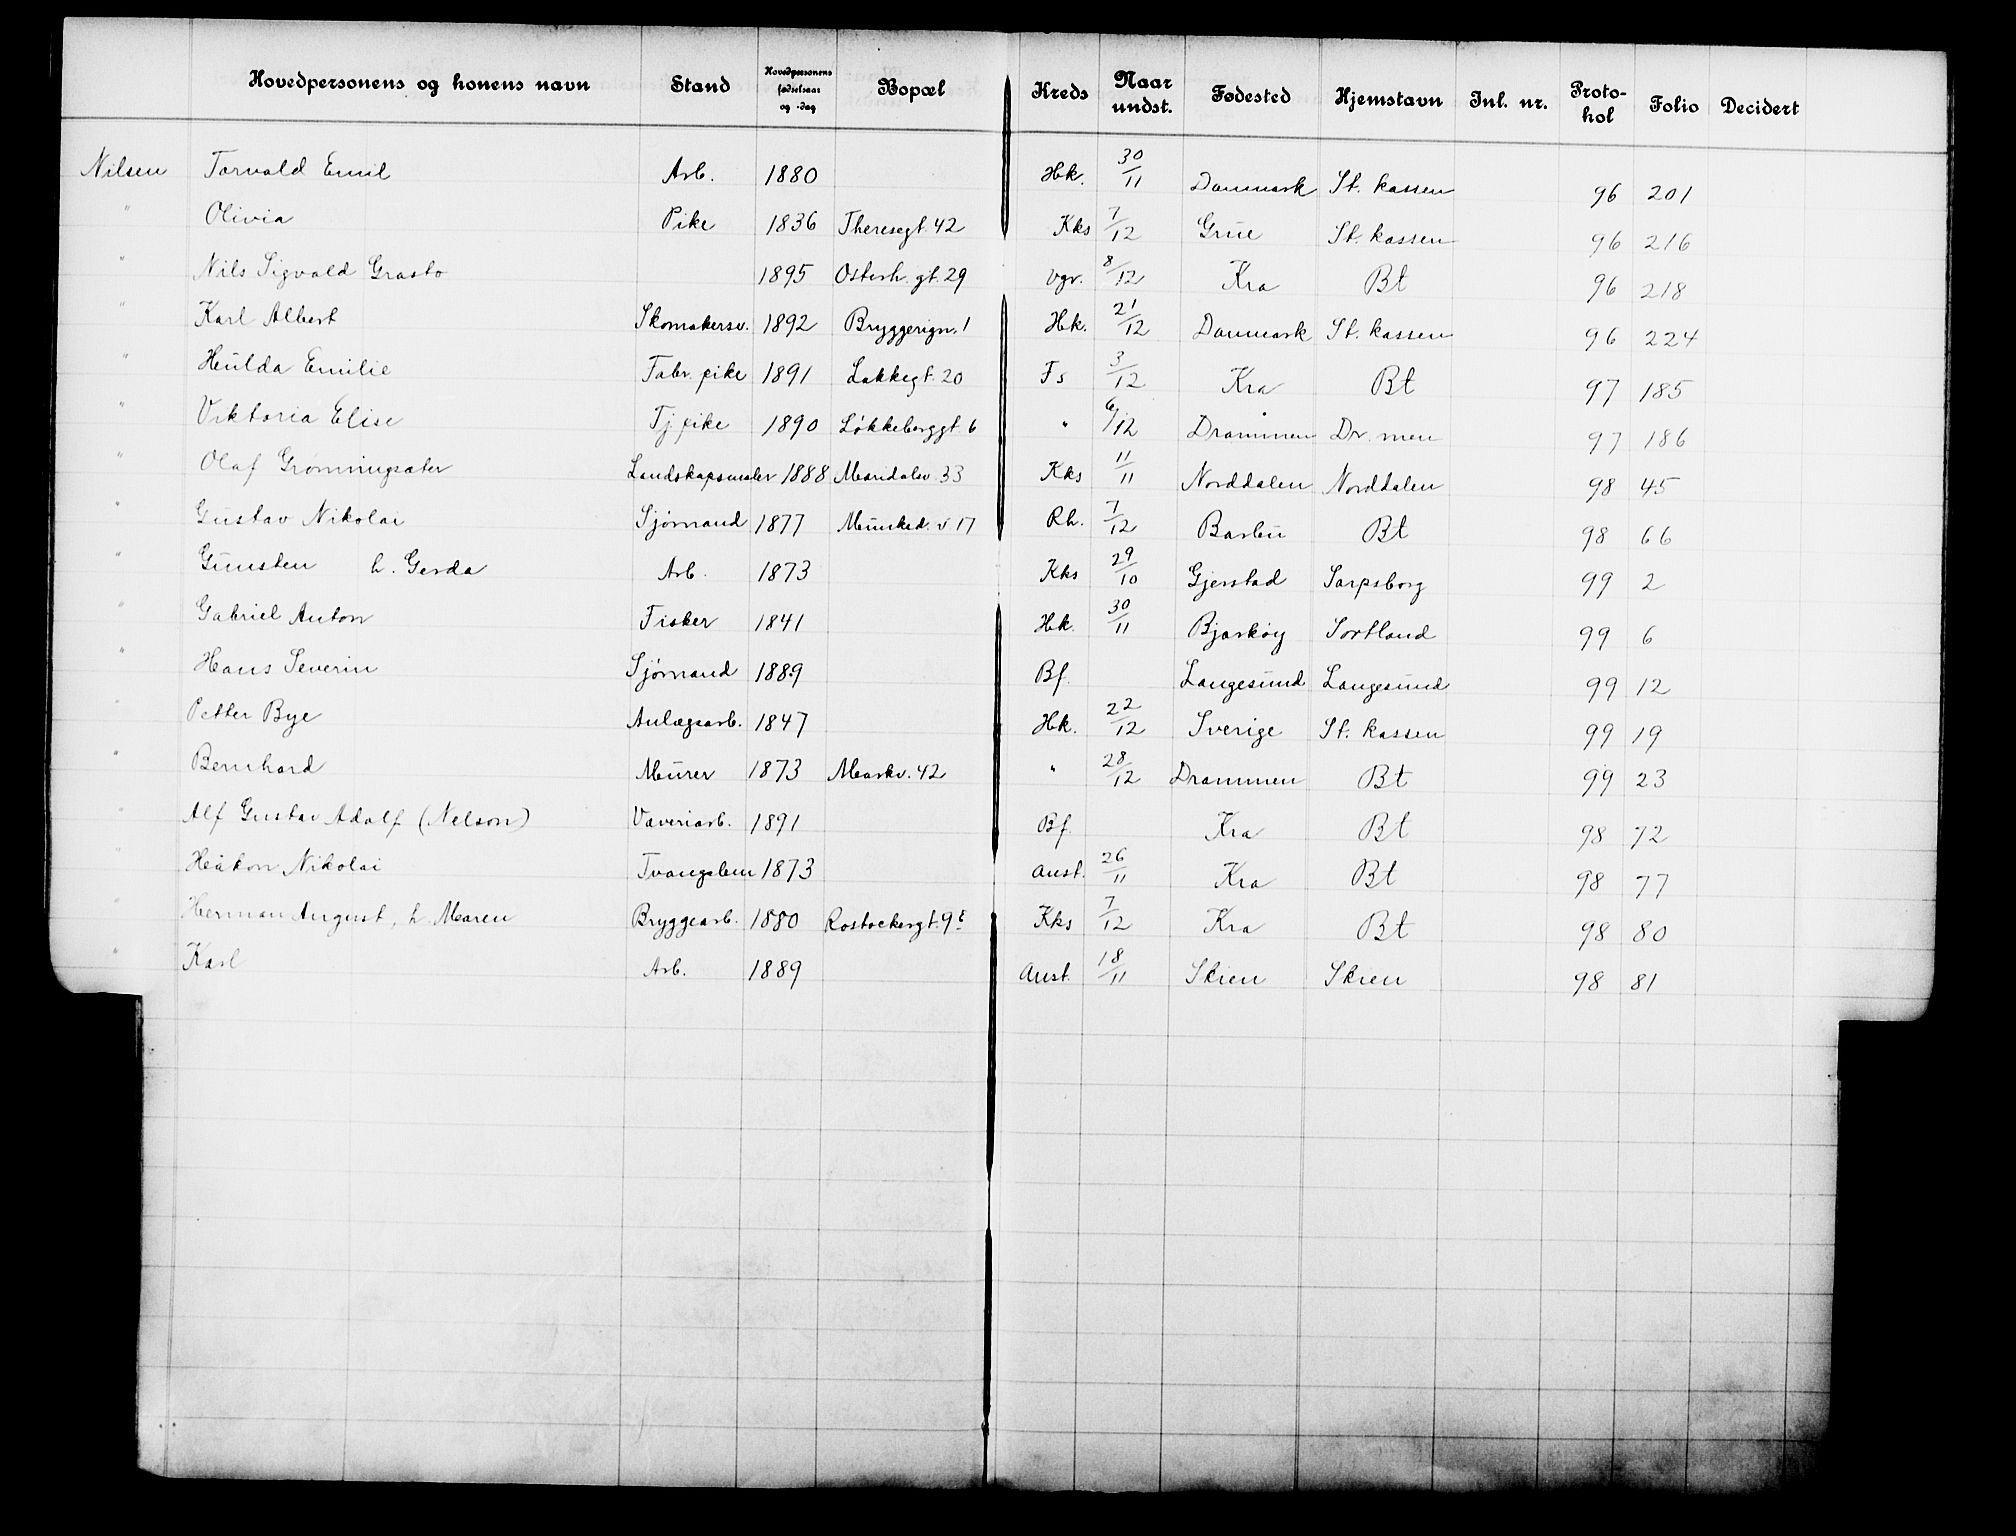 Hovedpersonens og konens navn | Stand | Hovedpersonens fødselsaar og -dag | Bopæl | Kreds | Naar undst. | Fødested | Hjemstavn | Inl. nr. | Protokol | Folio | Decidert
Nilsen | Torvald Emil | Arb. | 1880 | | Hk. | 30/11 | Danmark | St. kassen | | 96 | 201
" | Olivia | Pike | 1836 | Theresegt. 42 | Kks | 7/12 | Grue | St. kassen | | 96 | 216
" | Nils Sigvald Grasto | | 1895 | Osterh. gt. 29 | Vgr. | 8/12 | Kra | Bt | | 96 | 218
" | Karl Albert | Skomakersv. | 1892 | Bryggerign. 1 | Hk. | 21/12 | Danmark | St. kassen | | 96 | 224
" | Hulda Emilie | Fabr. pike | 1891 | Lakkegt. 20 | Fs | 3/12 | Kra | Bt | | 97 | 185
" | Viktoria Elise | Tj. pike | 1890 | Løkkeberggt. 6 | " | 6/12 | Drammen | Dr. men | | 97 | 186
" | Olaf Grønningsæter | Landskapsmaler | 1888 | Maridalsv. 33 | Kks | 11/11 | Norddalen | Norddalen | | 98 | 45
" | Gustav Nikolai | Sjømand | 1877 | Munked. v 17 | Rh. | 7/12 | Barbu | Bt | | 98 | 66
" | Gunsten h. Gerda | Arb. | 1873 | | Kks | 29/10 | Gjerstad | Sarpsborg | | 99 | 2
" | Gabriel Anton | Fisker | 1841 | | Hk. | 30/11 | Bjarkøy | Sortland | | 99 | 6
" | Hans Severin | Sjømand | 1889 | | Bf. | | Langesund | Langesund | | 99 | 12
" | Petter Bye | Anlægsarb. | 1847 | | Hk. | 22/12 | Sverige | St. kassen | | 99 | 19
" | Bernhard | Murer | 1873 | Markv. 42 | " | 28/12 | Drammen | Bt | | 99 | 23
" | Alf Gustav Adolf (Nelson) | Væveriarb. | 1891 | | Bf. | | Kra | Bt | | 98 | 72
" | Håkon Nikolai | Tvangslem | 1873 | | Anst. | 26/11 | Kra | Bt | | 98 | 77
" | Herman August, h. Maren | Bryggearb. | 1880 | Rostockergt. 9 | Kks | 7/12 | Kra | Bt | | 98 | 80
" | Karl | Arb. | 1889 | | Anst. | 18/11 | Skien | Skien | | 98 | 81